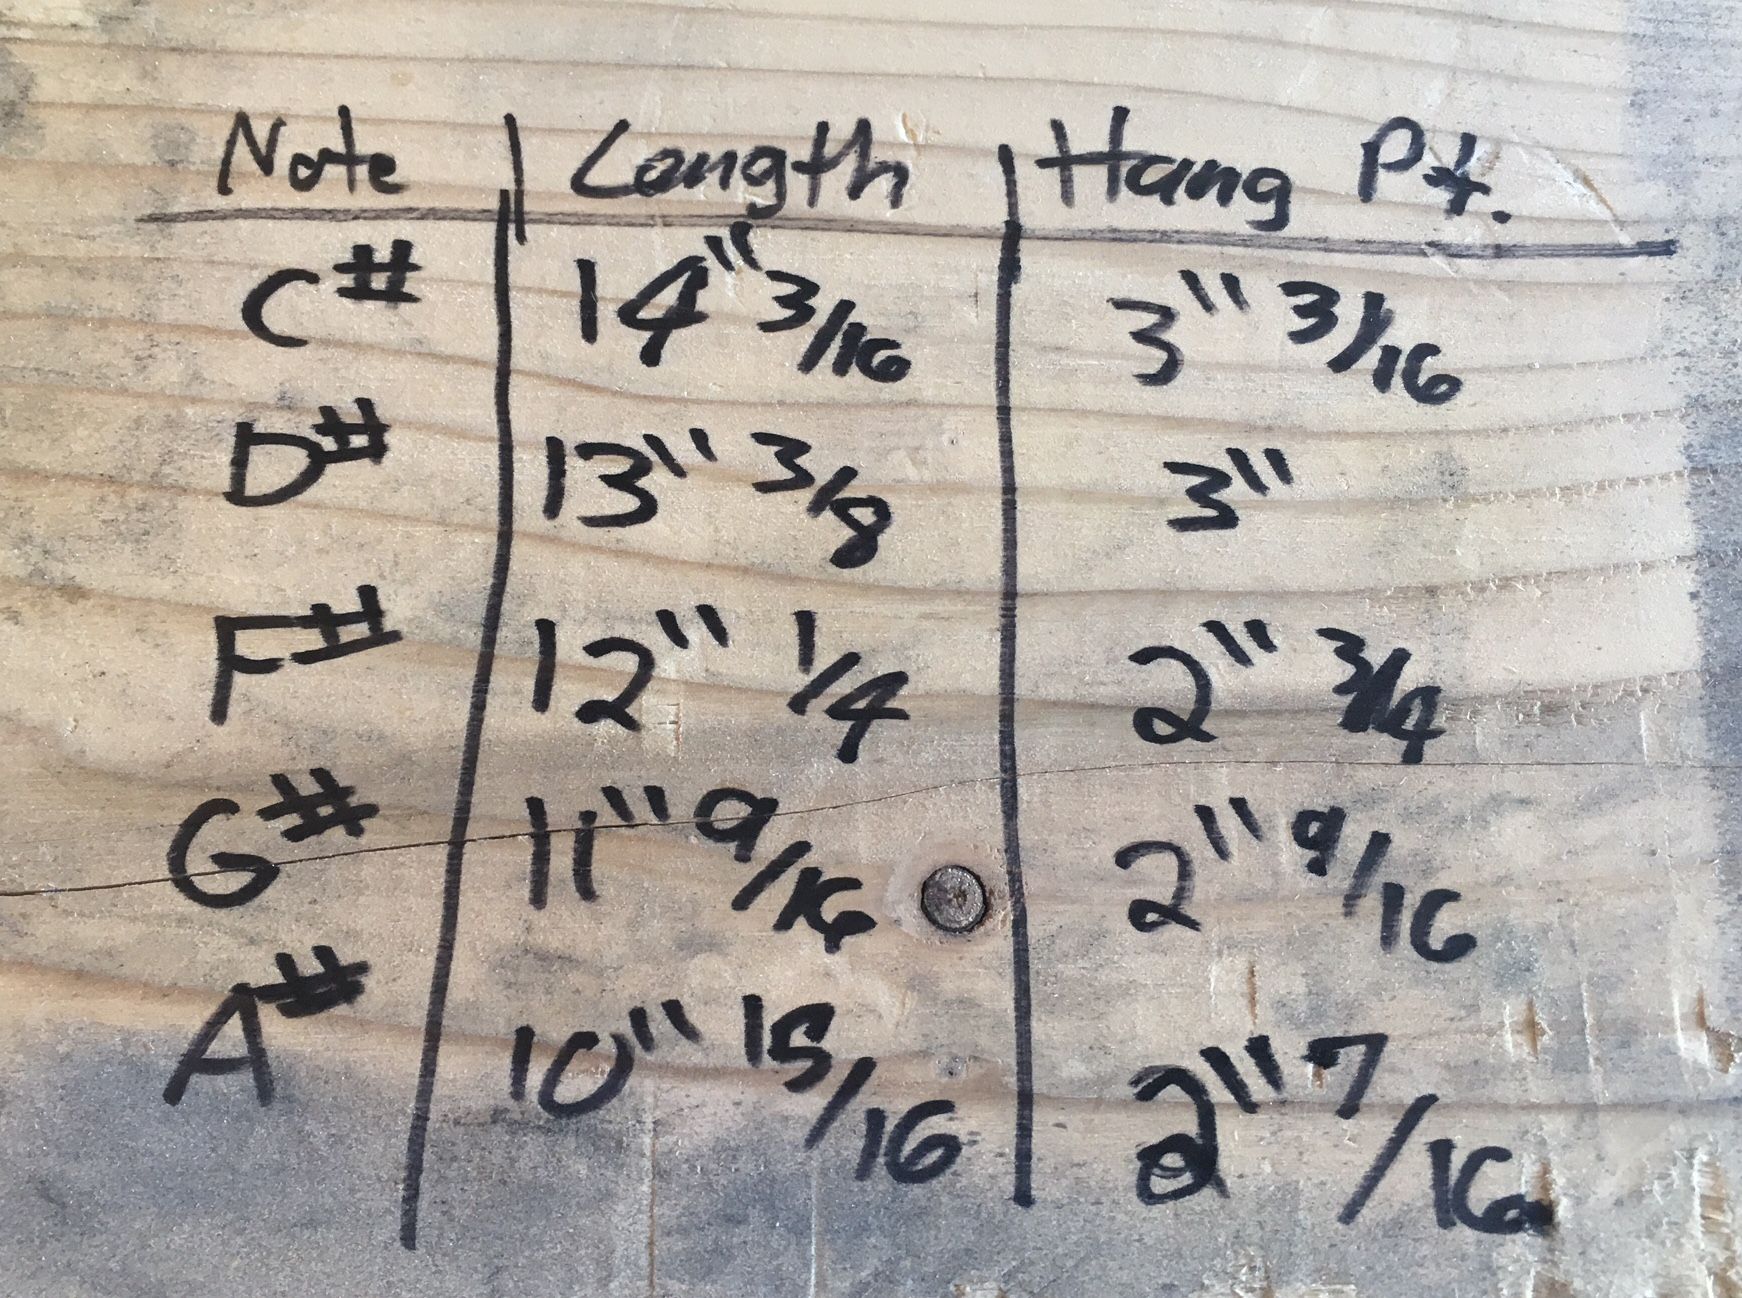 Note Length Hang Pt.
C# 14" 3/16 3" 3/16
D# 13" 3/8 3"
F# 12" 1/4 2" 3/4
G# 11" 9/16 2" 9/16
A# 10" 15/16 2" 7/16